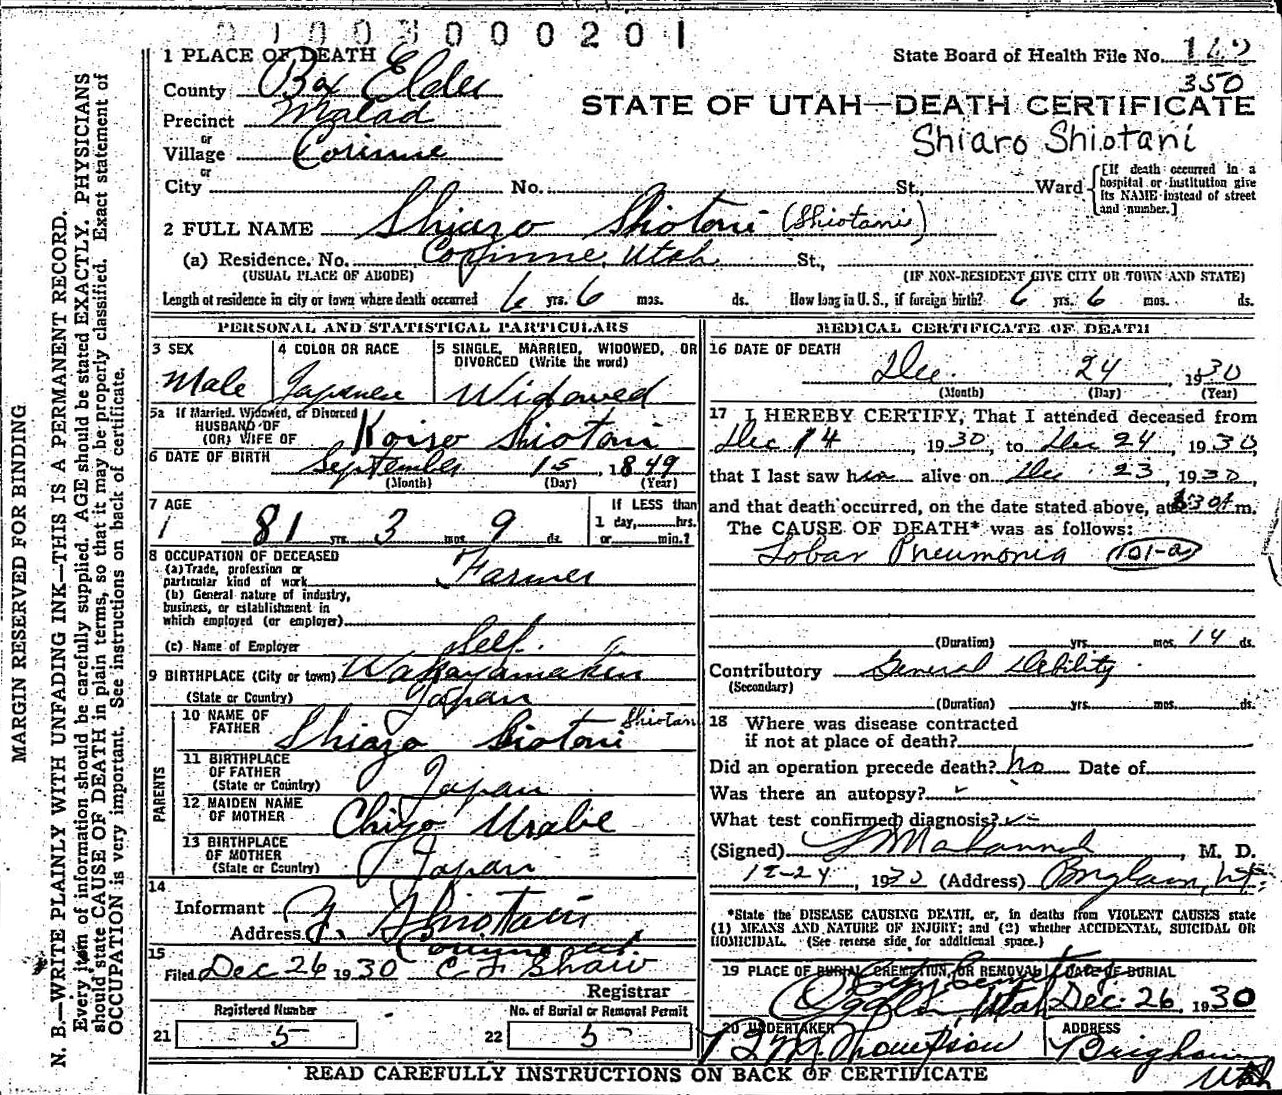 1003000201
1 PLACE OF DEATH
State Board of Health File No. 142
350
County Box Elder
STATE OF UTAH—DEATH CERTIFICATE
Precinct Malad
Shiaro Shiotani
or
Village Corinne
or
City No. St., Ward
[If death occurred in a hospital or institution give its NAME instead of street and number.]
2 FULL NAME Shiazo Shiotoni (Shiotani)
(a) Residence. No. Corinne, Utah St.,
(USUAL PLACE OF ABODE) (IF NON-RESIDENT GIVE CITY OR TOWN AND STATE)
Length of residence in city or town where death occurred 6 yrs. 6 mos. ds. How long in U. S., if foreign birth? 6 yrs. 6 mos. ds.
PERSONAL AND STATISTICAL PARTICULARS
3 SEX
Male
4 COLOR OR RACE
Japanese
5 SINGLE, MARRIED, WIDOWED, OR DIVORCED (Write the word)
Widowed
5a If Married, Widowed, or Divorced
HUSBAND OF
(OR) WIFE OF Koiso Shiotoni
6 DATE OF BIRTH September 15, 1849
(Month) (Day) (Year)
7 AGE
81 yrs. 3 mos. 9 ds.
If LESS than
1 day, hrs.
or min.?
8 OCCUPATION OF DECEASED
(a) Trade, profession or
particular kind of work Farmer
(b) General nature of industry,
business, or establishment in
which employed (or employer)
(c) Name of Employer Self
9 BIRTHPLACE (City or town) Wakayamaken
(State or Country) Japan
PARENTS
10 NAME OF
FATHER Shiazo Siotoni Shiotani
11 BIRTHPLACE
OF FATHER
(State or Country) Japan
12 MAIDEN NAME
OF MOTHER Chiyo Urabe
13 BIRTHPLACE
OF MOTHER
(State or Country) Japan
14
Informant Y. Shiotani
Address Corinne Ut.
15
Filed Dec 26 1930 C F Shaw
Registrar
Registered Number
21 5
No. of Burial or Removal Permit
22 5
MEDICAL CERTIFICATE OF DEATH
16 DATE OF DEATH
Dec. 24, 1930
(Month) (Day) (Year)
17 I HEREBY CERTIFY, That I attended deceased from
Dec 14, 1930, to Dec 24, 1930,
that I last saw him alive on Dec 23, 1930,
and that death occurred, on the date stated above, at m.
The CAUSE OF DEATH* was as follows:
Lobar Pneumonia (101-a)
(Duration) yrs. mos. 14 ds.
Contributory General Debility
(Secondary)
(Duration) yrs. mos. ds.
18 Where was disease contracted
if not at place of death?
Did an operation precede death? no Date of
Was there an autopsy?
What test confirmed diagnosis?
(Signed) , M. D.
12-24, 1930 (Address) Brigham, Ut.
*State the DISEASE CAUSING DEATH, or, in deaths from VIOLENT CAUSES state
(1) MEANS AND NATURE OF INJURY; and (2) whether ACCIDENTAL, SUICIDAL OR
HOMICIDAL. (See reverse side for additional space.)
19 PLACE OF BURIAL, CREMATION, OR REMOVAL DATE OF BURIAL
City Cemetery
Ogden, Utah Dec. 26, 1930
20 UNDERTAKER ADDRESS
Thompson Brigham
Utah
READ CAREFULLY INSTRUCTIONS ON BACK OF CERTIFICATE
MARGIN RESERVED FOR BINDING
N. B.—WRITE PLAINLY WITH UNFADING INK—THIS IS A PERMANENT RECORD.
Every item of information should be carefully supplied. AGE should be stated EXACTLY. PHYSICIANS
should state CAUSE OF DEATH in plain terms, so that it may be properly classified. Exact statement of
OCCUPATION is very important. See instructions on back of certificate.